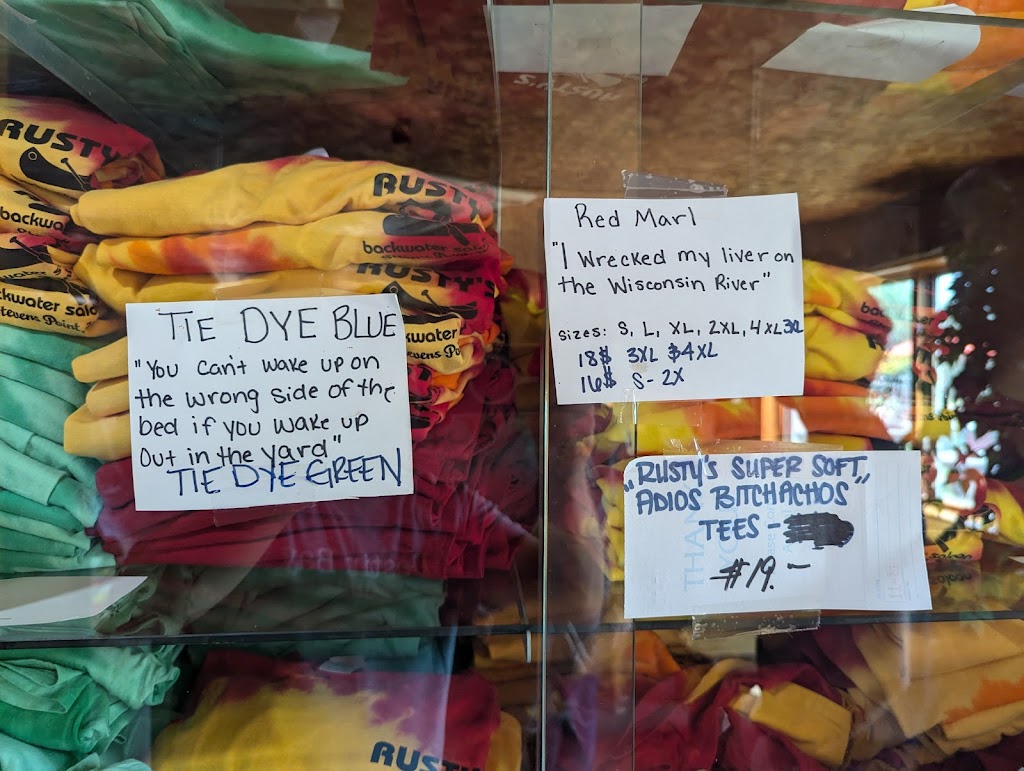 RUSTY
backwa
ckwater salo
Stevens Point
RUSTY
backwater salo
RUSTY'S
kwater
evens Po
TIE DYE BLUE
"You Can't wake up on
the wrong side of the
bed if you wake up
Out in the yard"
TIE DYE GREEN
Red Marl
"I Wrecked my liver on
the Wisconsin River"
Sizes: S, L, XL, 2XL, 4XL 3XL
18$ 3XL $4XL
16$ S-2X
"RUSTY'S SUPER SOFT,
ADIOS BITCHACHOS"
TEES -
#19.-
THAN
RUSTY'S
bac
RUST